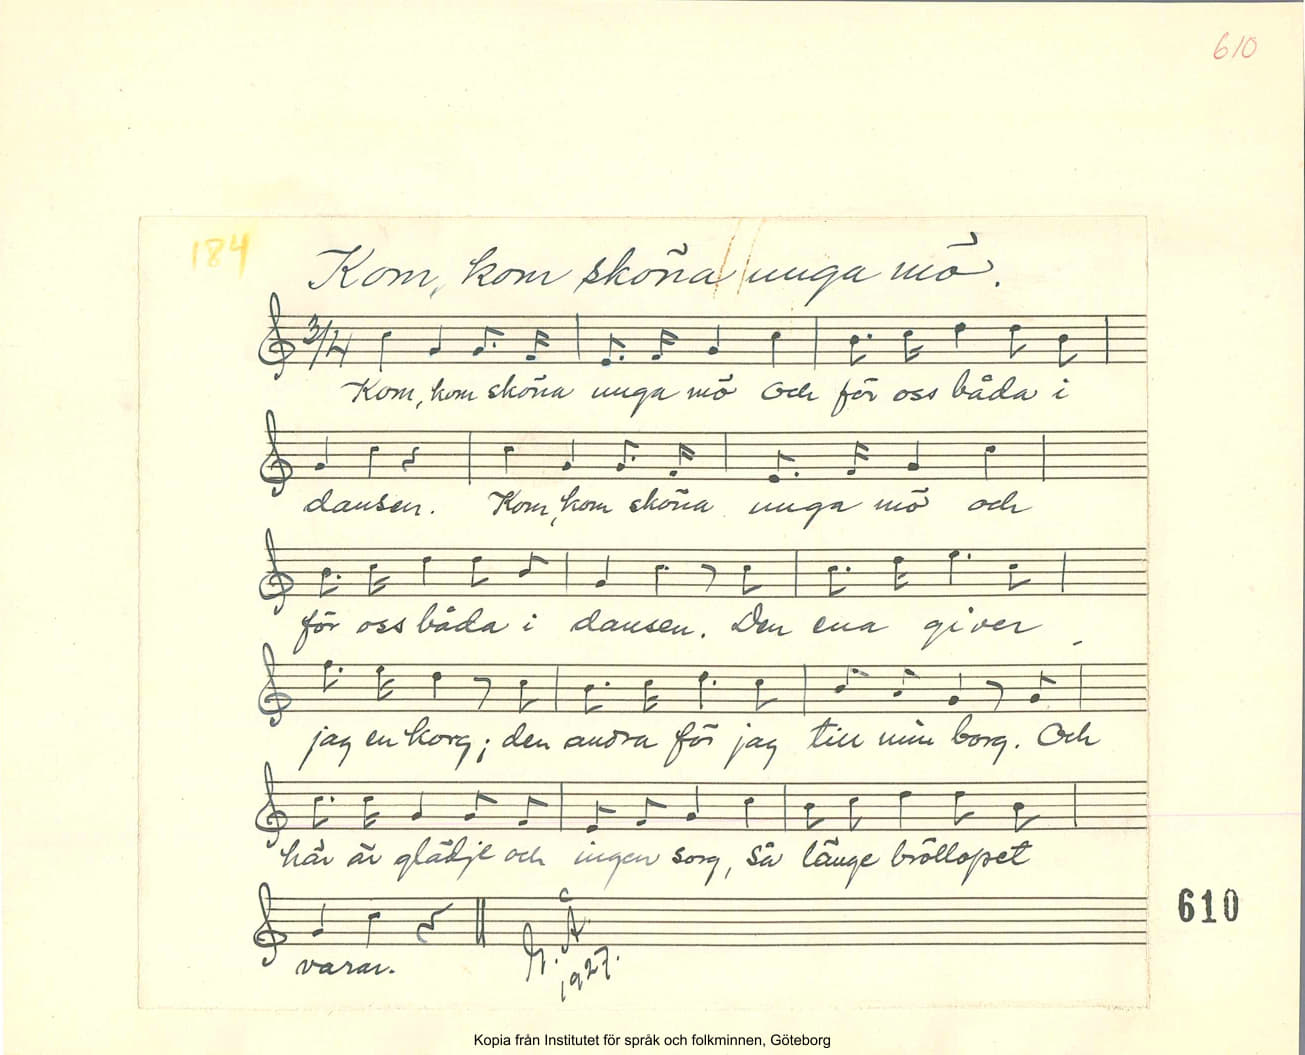 610
184
Kom, kom sköna unga mö.
3/4
Kom, kom sköna unga mö och för oss båda i
dansen. Kom, kom sköna unga mö och
för oss båda i dansen. Den ena giver
jag en korg; den andra för jag till min borg. Och
här är glädje och ingen sorg, så länge bröllopet
610
varar.
1927.
Kopia från Institutet för språk och folkminnen, Göteborg